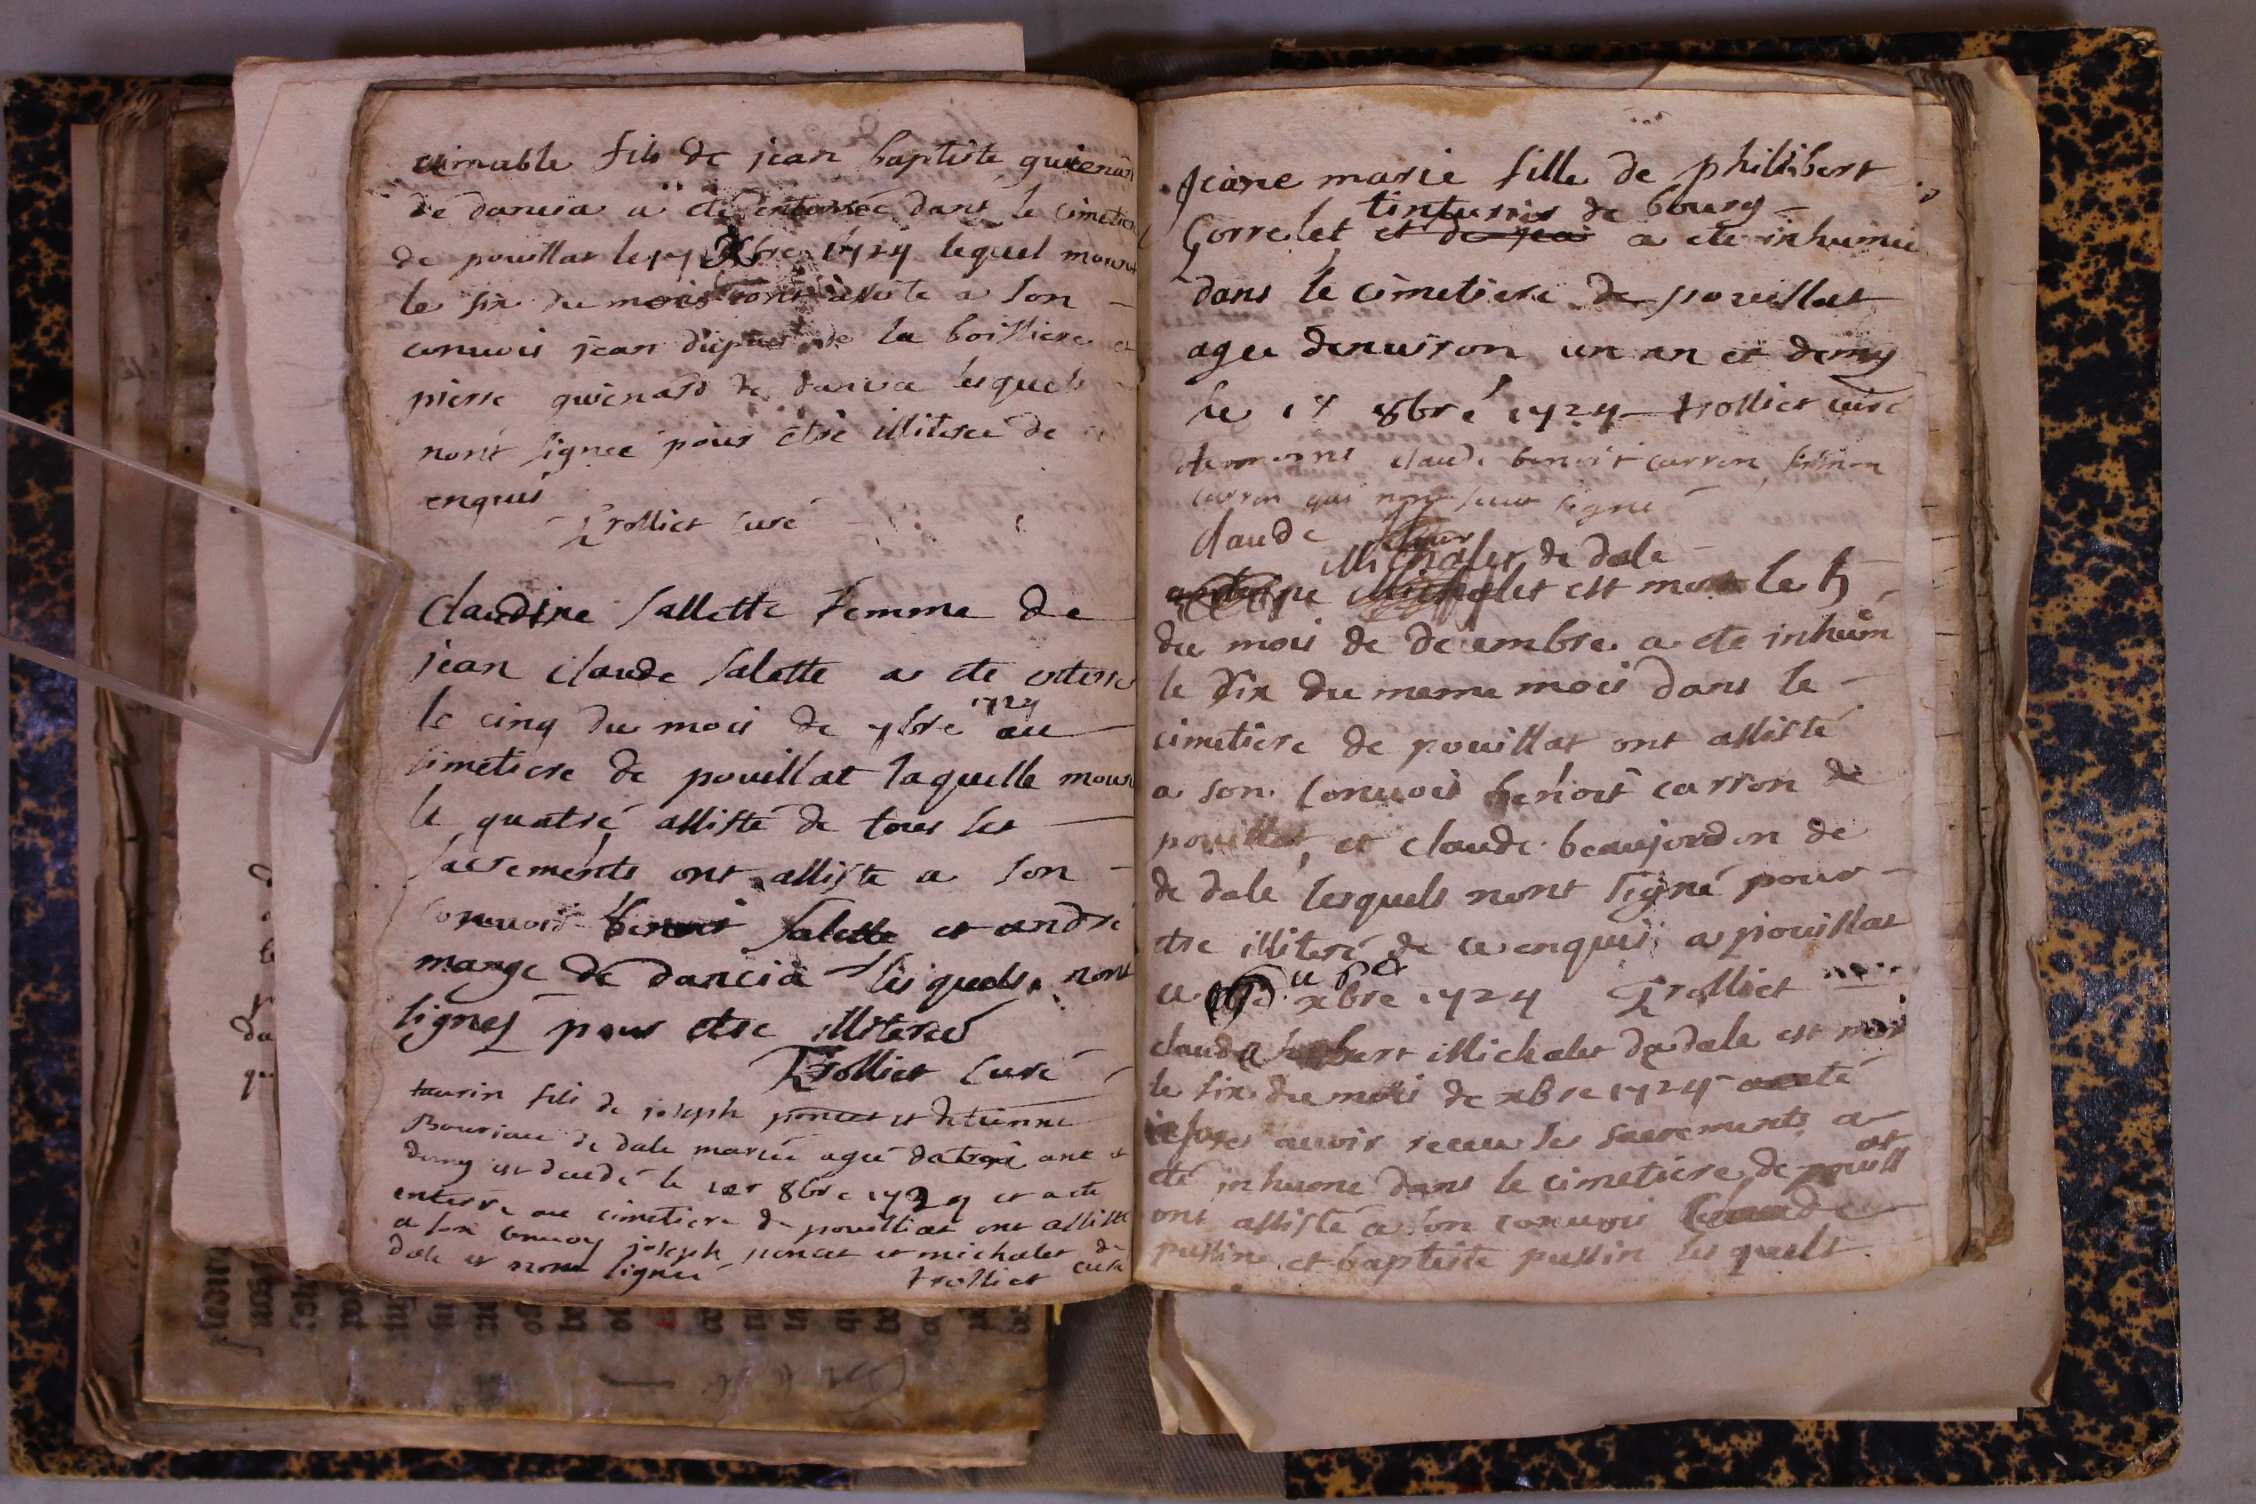 aimable fils de jean baptiste guienard
de dancia a ete enterrée dans le cimetiere
de pouillat le 7 1724 lequel mourut
le six du mois ont assiste a son
convois jean dupuis de la boissiere et
pierre guienard de dancia lesquels
nont signee pour etre illiteree de ce
enquis
Trolliet curé
Claudine sallette femme de
jean claude salette a ete enterré
le cinq du mois de 7bre 1724 au
simetiere de pouillat laquelle mouru
le quatré assisté de tous les
sacrements ont assiste a son
convois benoit salette et andré
mange de dancia lesquels nont
signez pour etre illiterés
Trolliet curé
taurin fils de joseph poncet et detienne
Bouriau de dale mariée agé trois ans et
demy est decedé le 1er 8bre 1724 et a ete
enterre au cimetiere de pouilliat ont assiste
a son convoy joseph poncet et michalet de
dale et nont signée trolliet curé
da
qu
Jeane marie fille de philibert
tinturier de bourg
Gorrelet et de a ete inhumée
dans le cimetiere de pouillat
agee denviron un an et demy
le 17 8bré 1724 trolliet curé
claude benoit carron
carron qui nont signé
claude
Michalet de dale
Michalet est mort le 5
du mois de decembre a ete inhumé
le six du meme mois dans le
cimetiere de pouillat ont assisté
a son convois benoit carron de
pouillat, et claude beaujordon de
de dale lesquels nont signé pour
etre illiteré de ce enquis a pouillat
ce u 6e xbre 1724 Trolliet
claude Michalet de dale est mort
le six du mois de xbre 1724
apres avoir receu les sacrements a
eté inhume dans le cimetiere de pouillat
ont assisté a son convois Claude
pussine et baptiste pussin lesquels